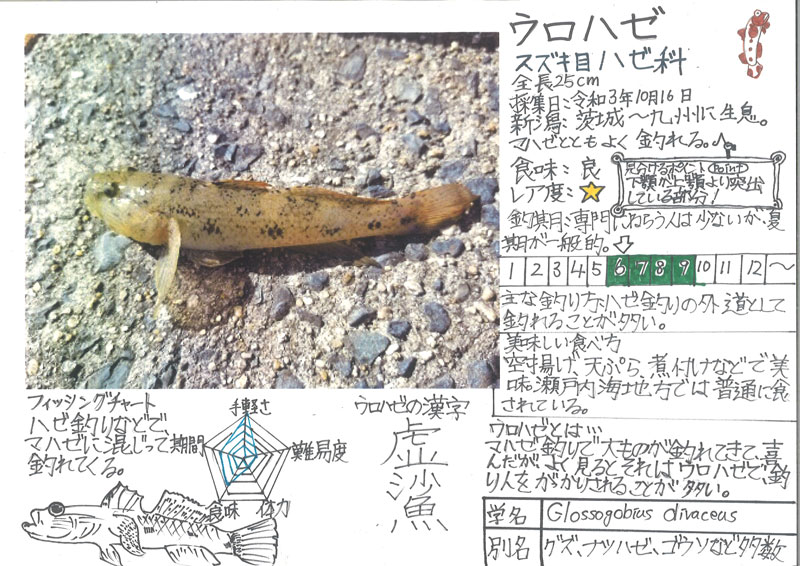 ウロハゼ
スズキ目ハゼ科
全長25cm
採集日:令和3年10月16日
新潟:茨城〜九州に生息。
マハゼとともよく釣れる。
食味:良
レア度:
見分けるポイント(Point)
下顎が上顎より突出
している部分!
釣期:専門にねらう人は少ないが、夏
期が一般的。
1 2 3 4 5 6 7 8 9 10 11 12 〜
主な釣り方:ハゼ釣りの外道として
釣れることが多い。
美味しい食べ方
空揚げ、天ぷら、煮付けなどで美
味。瀬戸内海地方では普通に食
されている。
フィッシングチャート
ハゼ釣りなどで、
マハゼに混じって
釣れてくる。
手軽さ
難易度
体力
食味
期間
ウロハゼの漢字
虚沙魚
ウロハゼとは…
マハゼ釣りで大ものが釣れてきて、喜
んだが、よく見るとそれはウロハゼで、釣
り人をがっかりされることが多い。
学名 Glossogobius divaceus
別名 グズ、ナツハゼ、ゴウソなど多数